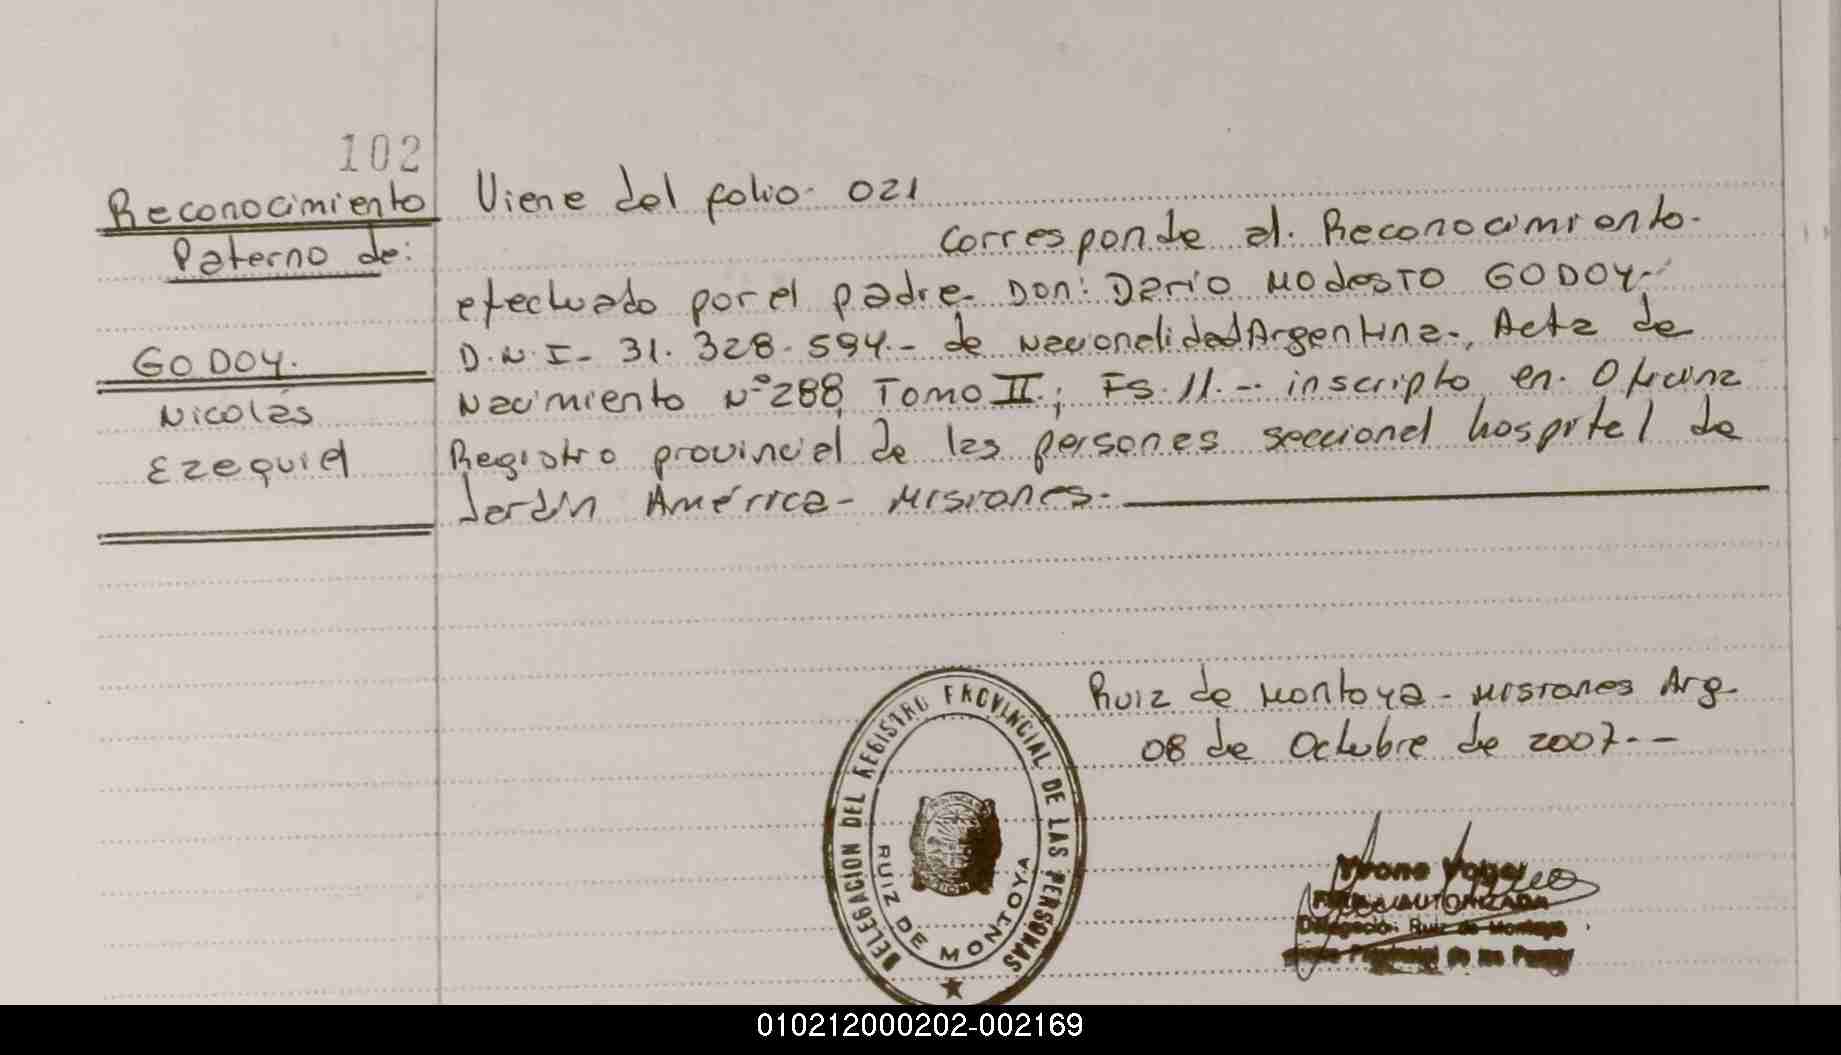 102
Reconocimiento
Paterno de:
GODOY.
Nicolás
Ezequiel
Viene del folio 021
Corresponde al. Reconocimiento.
efectuado por el padre Don: Darío Modesto GODOY.
D.N.I- 31.328.594.- de Nacionalidad Argentina., Acta de
Nacimiento N° 288 Tomo II; FS. 11.-- inscripto en. Oficina
Registro provincial de las personas seccional hospital de
Jardín América - Misiones.
Ruiz de Montoya - Misiones Arg.
08 de Octubre de 2007.--
DELEGACION DEL REGISTRO PROVINCIAL DE LAS PERSONAS
RUIZ DE MONTOYA
AUTORIZADA
Delegación Ruiz de Montoya
Provincial de las
010212000202-002169